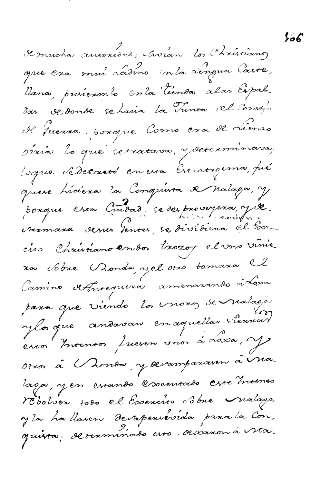 106
de mucha autoridad, savian los Christianos
que era mui Ladino en la Lengua Caste,
llana, pusieronlo en la tienda a las Espal,
das de donde se hacia la Junta del Consejo
de Guerra, porque Como era de Lienzo
oiria lo que se tratava, y determinava,
lo que se decretó en esa Estratagema, fué
que se hiciera la Conquista de Malaga, y
porque esta Ciudad, se destruviera, y de
dividiera el Exer
cito Christiano en dos trozos el uno vinie,
ra sobre Ronda, y el otro tomara el
Camino de Antequera amenazando á Loxa
para que viendo los moros de Malaga
y los que andavan en aquellas Sierras
estos Intentos fuesen unos á Loxa, y
otros á Ronda, y desamparasen á Ma
laga, y en estando executado este Intento
rebolver todo el Exercito sobre Malaga
y la hallasen desapercevida para la Con,
quista, determinado esto, dexaron á Ma,